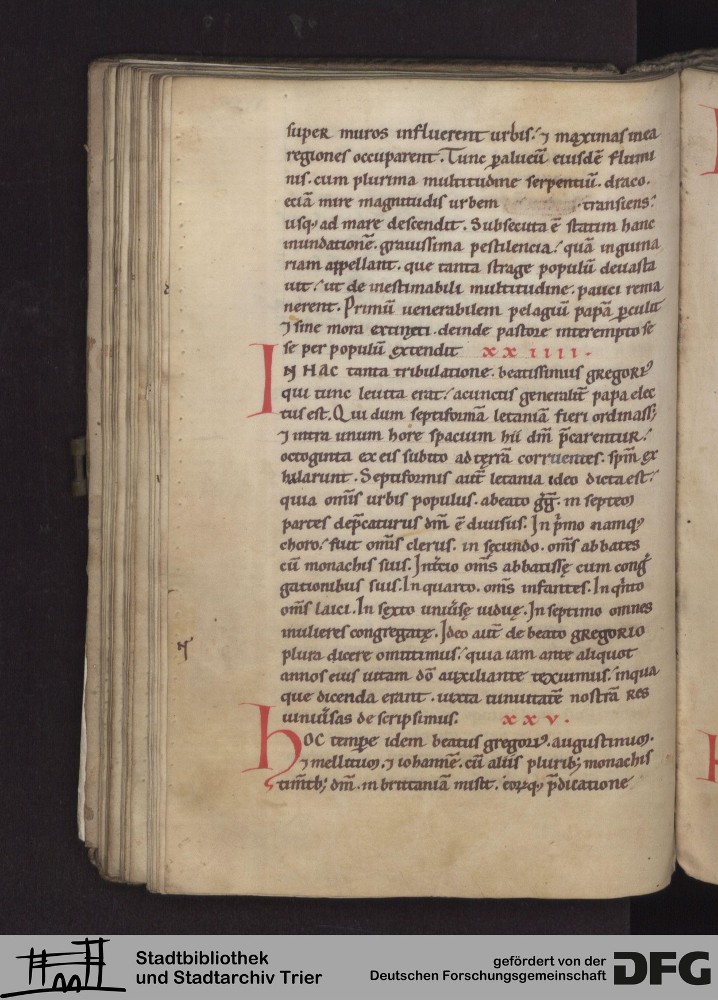 super muros influerent urbis.ʼ ⁊ maximas in ea
regiones occuparent. Tunc ꝑ alueū eiusdē flumi
nis. cum plurima multitudine serpentiū. draco.
eciā mire magnitudis urbem transiens.ʼ
usq; ad mare descendit. Subsecuta ē statim hanc
inundationē. grauissima pestilencia.ʼ quā inguina
riam appellant. que tanta strage populū deuasta
uit.ʼ ut de inestimabili multitudine. pauci rema
nerent. Primū uenerabilem pelagiū papā ꝑculit
⁊ sine mora extincti. deinde pastore interempto se
se per populū extendit xxiiii.
IN HAC tanta tribulatione. beatissimus gregoriꝰ
qui tunc leuita erat.ʼ a cunctis generalit̄ papa elec
tus est. Qui dum septiformā letaniā fieri ordinass;
⁊ intra unum hore spacium hii dm̄ p̄carentur.ʼ
octoginta ex eis subito ad tęrrā corruentes. spm̄ ex
halarunt. Septiformis aut̄ letania ideo dicta est.ʼ
quia om̄is urbis populus. a beato gḡ. in septem
partes dep̄caturus dm̄ ē diuisus. In p̄mo namq;
choro.ʼ fuit om̄is clerus. in sęcundo. om̄s abbates
cū monachis suis. In t̄cio om̄s abbatissę cum conḡ
gationibus suis. In quarto. om̄s infantes. In qⁱnto
om̄s laici. In sexto uniu̾sę uiduę. In septimo omnes
mulieres congregatę. Ideo aut̄ de beato gregorio
plura dicere omittimus.ʼ quia iam ante aliquot
annos eius uitam dō auxiliante texuimus.ʼ in qua
que dicenda erant. iuxta tenuitatē nostrā res
uniu̾sas descripsimus. xxv.
hoc tempe idem beatus gregoriꝰ. augustinum.
⁊ mellitum. ⁊ iohannē. cū aliis plurib; monachis
tim̄tib; dm̄. in brittaniā misit. eoꝝq; p̄dicatione
Stadtbibliothek
und Stadtarchiv Trier
gefördert von der
Deutschen Forschungsgemeinschaft
DFG